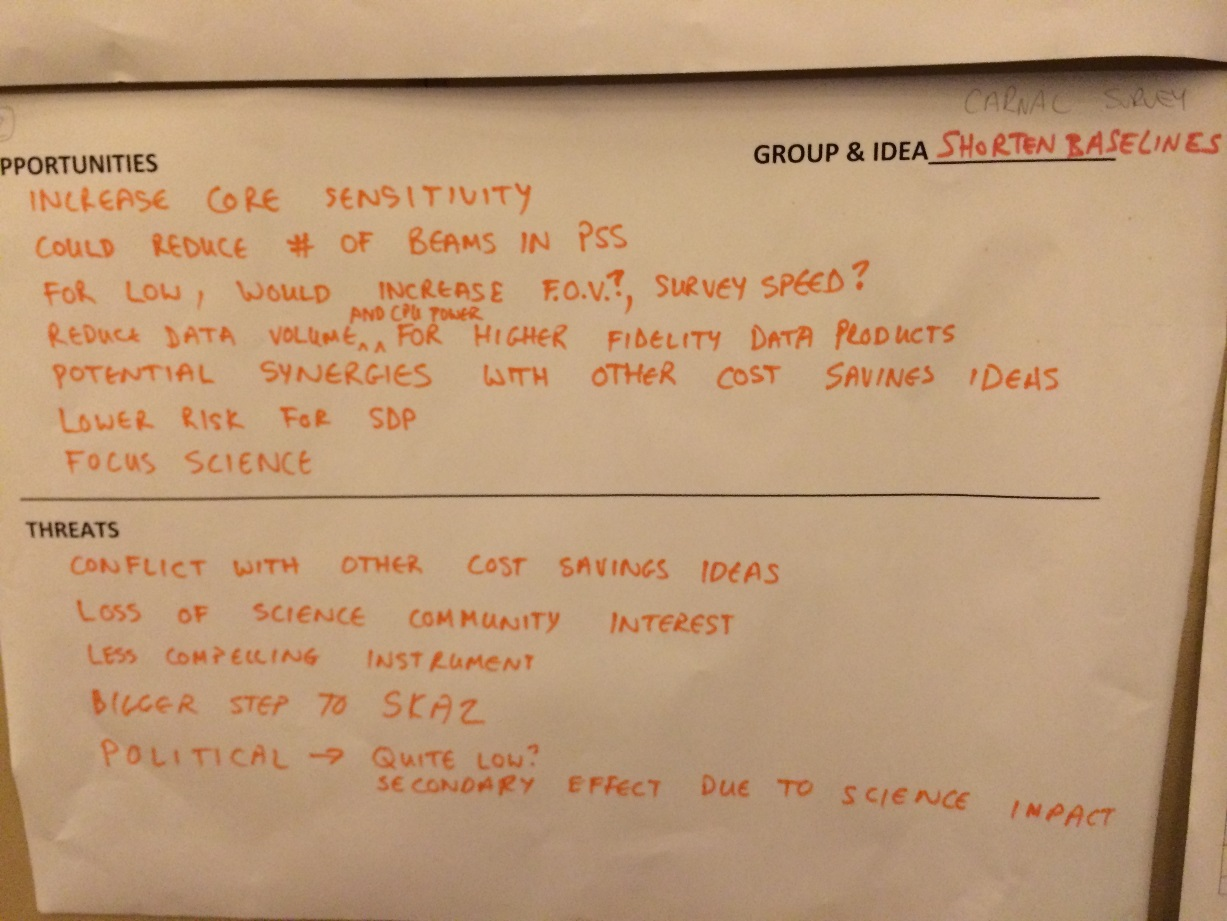 CARNAC SURVEY
PPORTUNITIES
GROUP & IDEA SHORTEN BASELINES
INCREASE CORE SENSITIVITY
COULD REDUCE # OF BEAMS IN PSS
FOR LOW, WOULD INCREASE F.O.V.?, SURVEY SPEED?
AND CPU POWER
REDUCE DATA VOLUME ^^ FOR HIGHER FIDELITY DATA PRODUCTS
POTENTIAL SYNERGIES WITH OTHER COST SAVINGS IDEAS
LOWER RISK FOR SDP
FOCUS SCIENCE
THREATS
CONFLICT WITH OTHER COST SAVINGS IDEAS
LOSS OF SCIENCE COMMUNITY INTEREST
LESS COMPELLING INSTRUMENT
BIGGER STEP TO SKA2
POLITICAL → QUITE LOW?
SECONDARY EFFECT DUE TO SCIENCE IMPACT